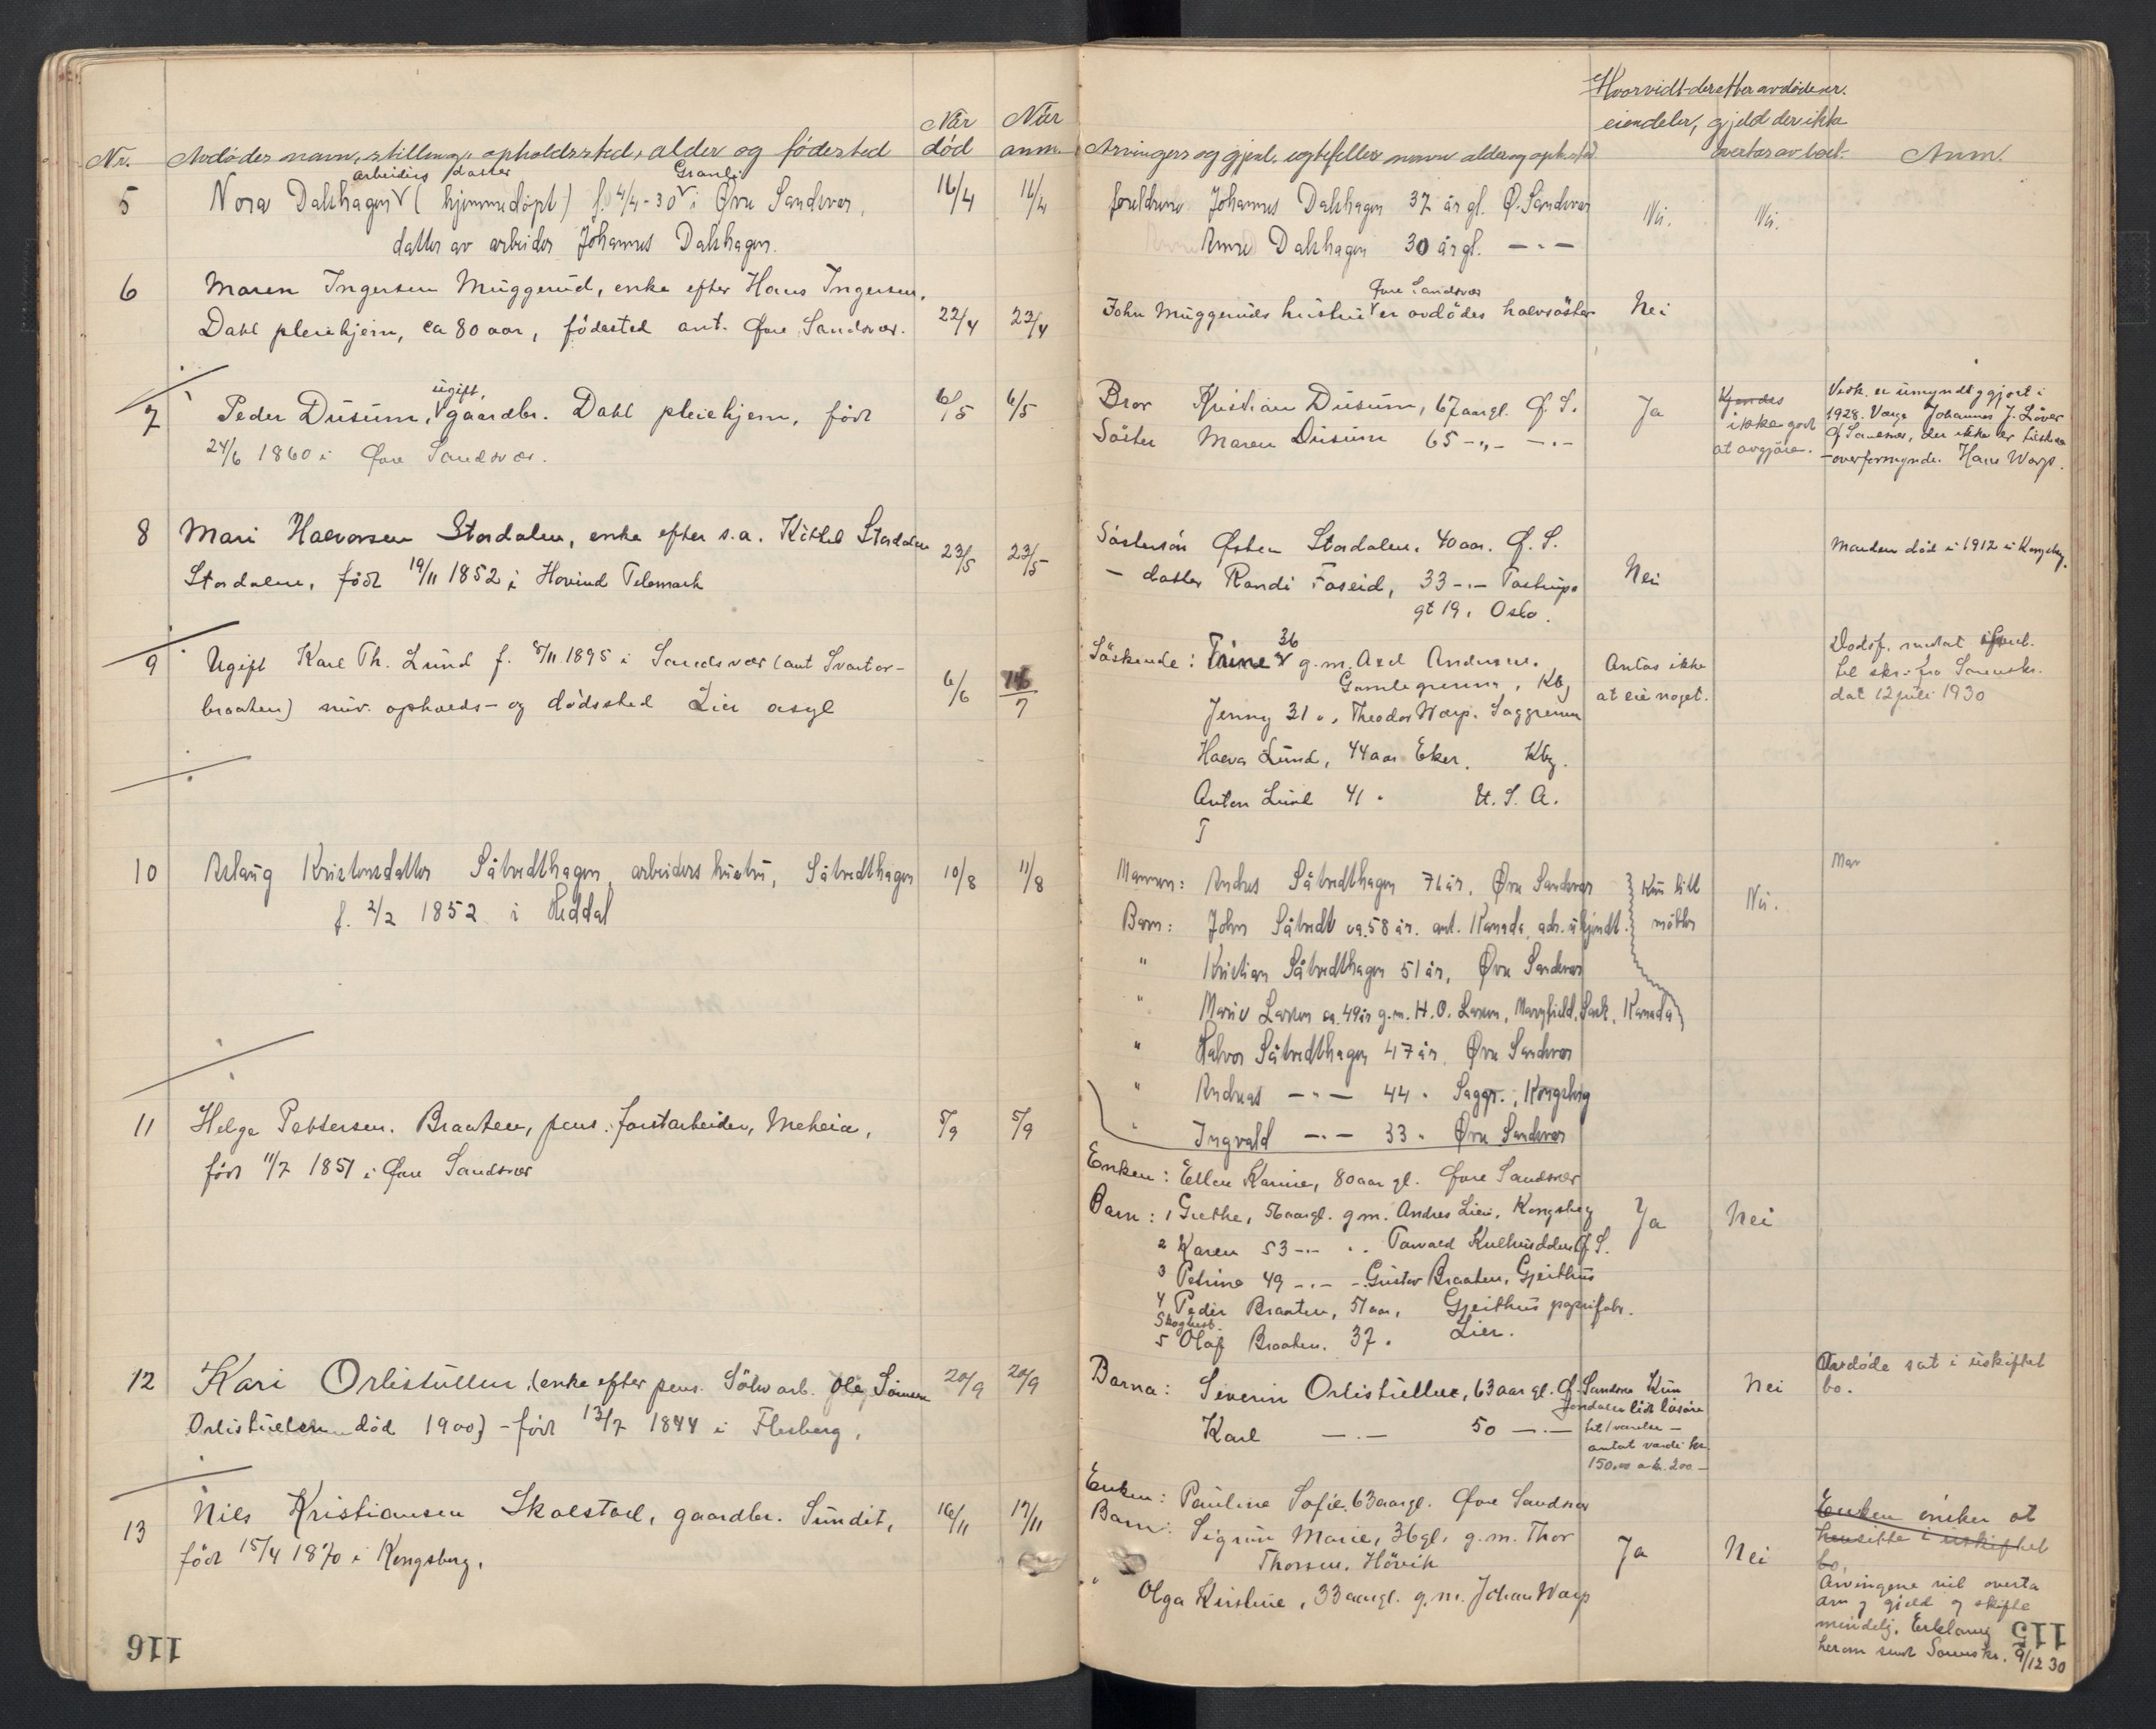 Nr. Avdødes navn, stilling, opholdssted, alder og fødested
Når død
Når anm.
Arvingers og gjenl. egtefelles navn alder og opholdssted
Hvorvidt der efter avdøde er
eiendeler, gjeld der ikke
overtas av boet.
Anm.
5 Nora Dalshagen (hjemmedøpt) f. 4/4-30 i Øvre Sandsver,
arbeiders datter
Granli
datter av arbeider Johannes Dalshagen.
16/4
16/4
foreldrene Johannes Dalshagen 37 år gl. Ø. Sandsver
Anne Dalshagen 30 år gl. —"—
Nei.
Nei.
6 Maren Ingersen Muggerud, enke efter Hans Ingersen,
Dahl pleiehjem, ca 80 aar, fødested ant. Øvre Sandsvær.
22/4
23/4
Øvre Sandsvær
John Muggeruds hustru er avdødes halvsøster
Nei
7 Peder Dusum, ugift, gaardbr. Dahl pleiehjem, født
24/6 1860 i Øvre Sandsvær.
6/5
6/5
Bror Kristian Dusum, 67 aar gl. Ø. S.
Søster Maren Dusum 65 —"— —"—
Ja
Kjendes
ikke godt
at avgjøre.
Vedk. er umyndiggjort i
1928. Verge Johannes J. Løver
Ø Sandsvær, der ikke er tilstede
- overformynder Hans Warp.
8 Mari Halvorsen Stordalen, enke efter s.a. Kittel Stordalen
Stordalen, født 19/11 1852 i Hovind Telemark
23/5
23/5
Søstersøn Østen Stordalen, 40 aar. Ø. S.
— datter Randi Foseid, 33 —"— Tostrups
gt 19, Oslo.
Nei
Manden død i 1912 i Kongsberg.
9 Ugift Karl Th. Lund f. 5/11 1895 i Sandsvær (ant Svartor-
braaten) nuv. opholds- og dødssted Lier asyl
6/6
7
Søskende: Trine 36 g.m. Axel Andersen.
Gamlegrenna, Kbg
Jenny 31 ", Theodor Warp. Saggrenna
Halvor Lund, 44 aar Eker. Kbg.
Anton Lund 41 " U. S. A.
T
Antas ikke
at eie noget.
Dødsf. mottat
til skr. fra Sorensk.
dat 12 juli 1930
10 Aslaug Kristensdatter Såtvedthagen, arbeiders hustru, Såtvedthagen
f. 2/2 1852 i Heddal
10/8
11/8
Mannen: Andres Såtvedthagen 76 år, Øvre Sandsver
Barn: John Såtvedt ca. 58 år. ant. Kanada, adr. ukjendt.
" Kristian Såtvedthagen 51 år, Øvre Sandsver
" Marie Larsen ca. 49 år g.m. H. O. Larsen, Maryfield, Sask. Kanada
" Halvor Såtvedthagen 47 år, Øvre Sandsver
" Andreas —"— 44 " Saggr., Kongsberg
" Ingvald —"— 33 " Øvre Sandsver
Kun litt
møbler
Nei.
Man
11 Helge Pettersen Braaten, pens. forstarbeider, Meheia,
født 11/7 1851 i Øvre Sandsvær
5/9
5/9
Enken: Ellen Karine, 80 aar gl. Øvre Sandsvær
Barn: 1 Grethe, 56 aar gl. g.m. Andres Lien, Kongsberg
2 Karen 53 —"— " Torvald Ø. S.
3 Petrine 49 —"— " Gustav Braaten, Gjeithus
4 Peder Braaten, 51 aar, Gjeithus papirfabr.
Skogbest.
5 Olaf Braaten. 37 " Lier.
Ja
Nei
12 Kari Orlistullen, (enke efter pens. Sølvarb. Ole Simensen
Orlistullen død 1900) - født 13/7 1844 i Flesberg,
20/9
20/9
Barna: Severin Orlistullen, 63 aar gl. Ø. Sandsvær
Jondalen
Karl —"— 50 —"—
Kun
lidt løsøre
antat værdi kr
150.00 a k. 200 —
Nei
Avdøde sat i uskiftet
bo.
13 Nils Kristiansen Skalstad, gaardbr. Sundet,
født 15/4 1870 i Kongsberg,
16/11
17/11
Enken: Pauline Sofie, 63 aar gl. Øvre Sandsvær
Barn: Sigrun Marie, 36 gl. g.m. Thor
Thorsen, Høvik
" Olga Kirstine, 33 aar gl. g.m. Johan Warp
Ja
Nei
Enken ønsker at
hensitte i uskiftet
bo.
Arvingene vil overta
arv og gjeld og skifte
mindelig. Erklæring
herom sendt Sorenskr. 9/12 30
116
115